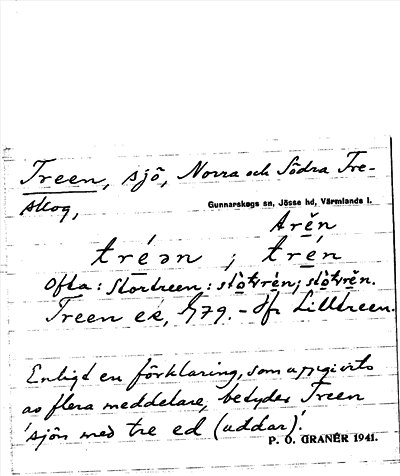 Treen, sjö, Norra och Södra Tre-
skog,
Gunnarskogs sn, Jösse hd, Värmlands l.
trĕ́n
tré̱ən ; tré̱n
Ofta: Stortreen: stò̱trén; stò̱trĕn.
Treen ek, G79. - Jfr Lilltreen.
Enligt en förklaring, som uppgivits
av flera meddelare, betyder Treen
'sjön med tre ed (uddar)'.
P. O. GRANÉR 1941.